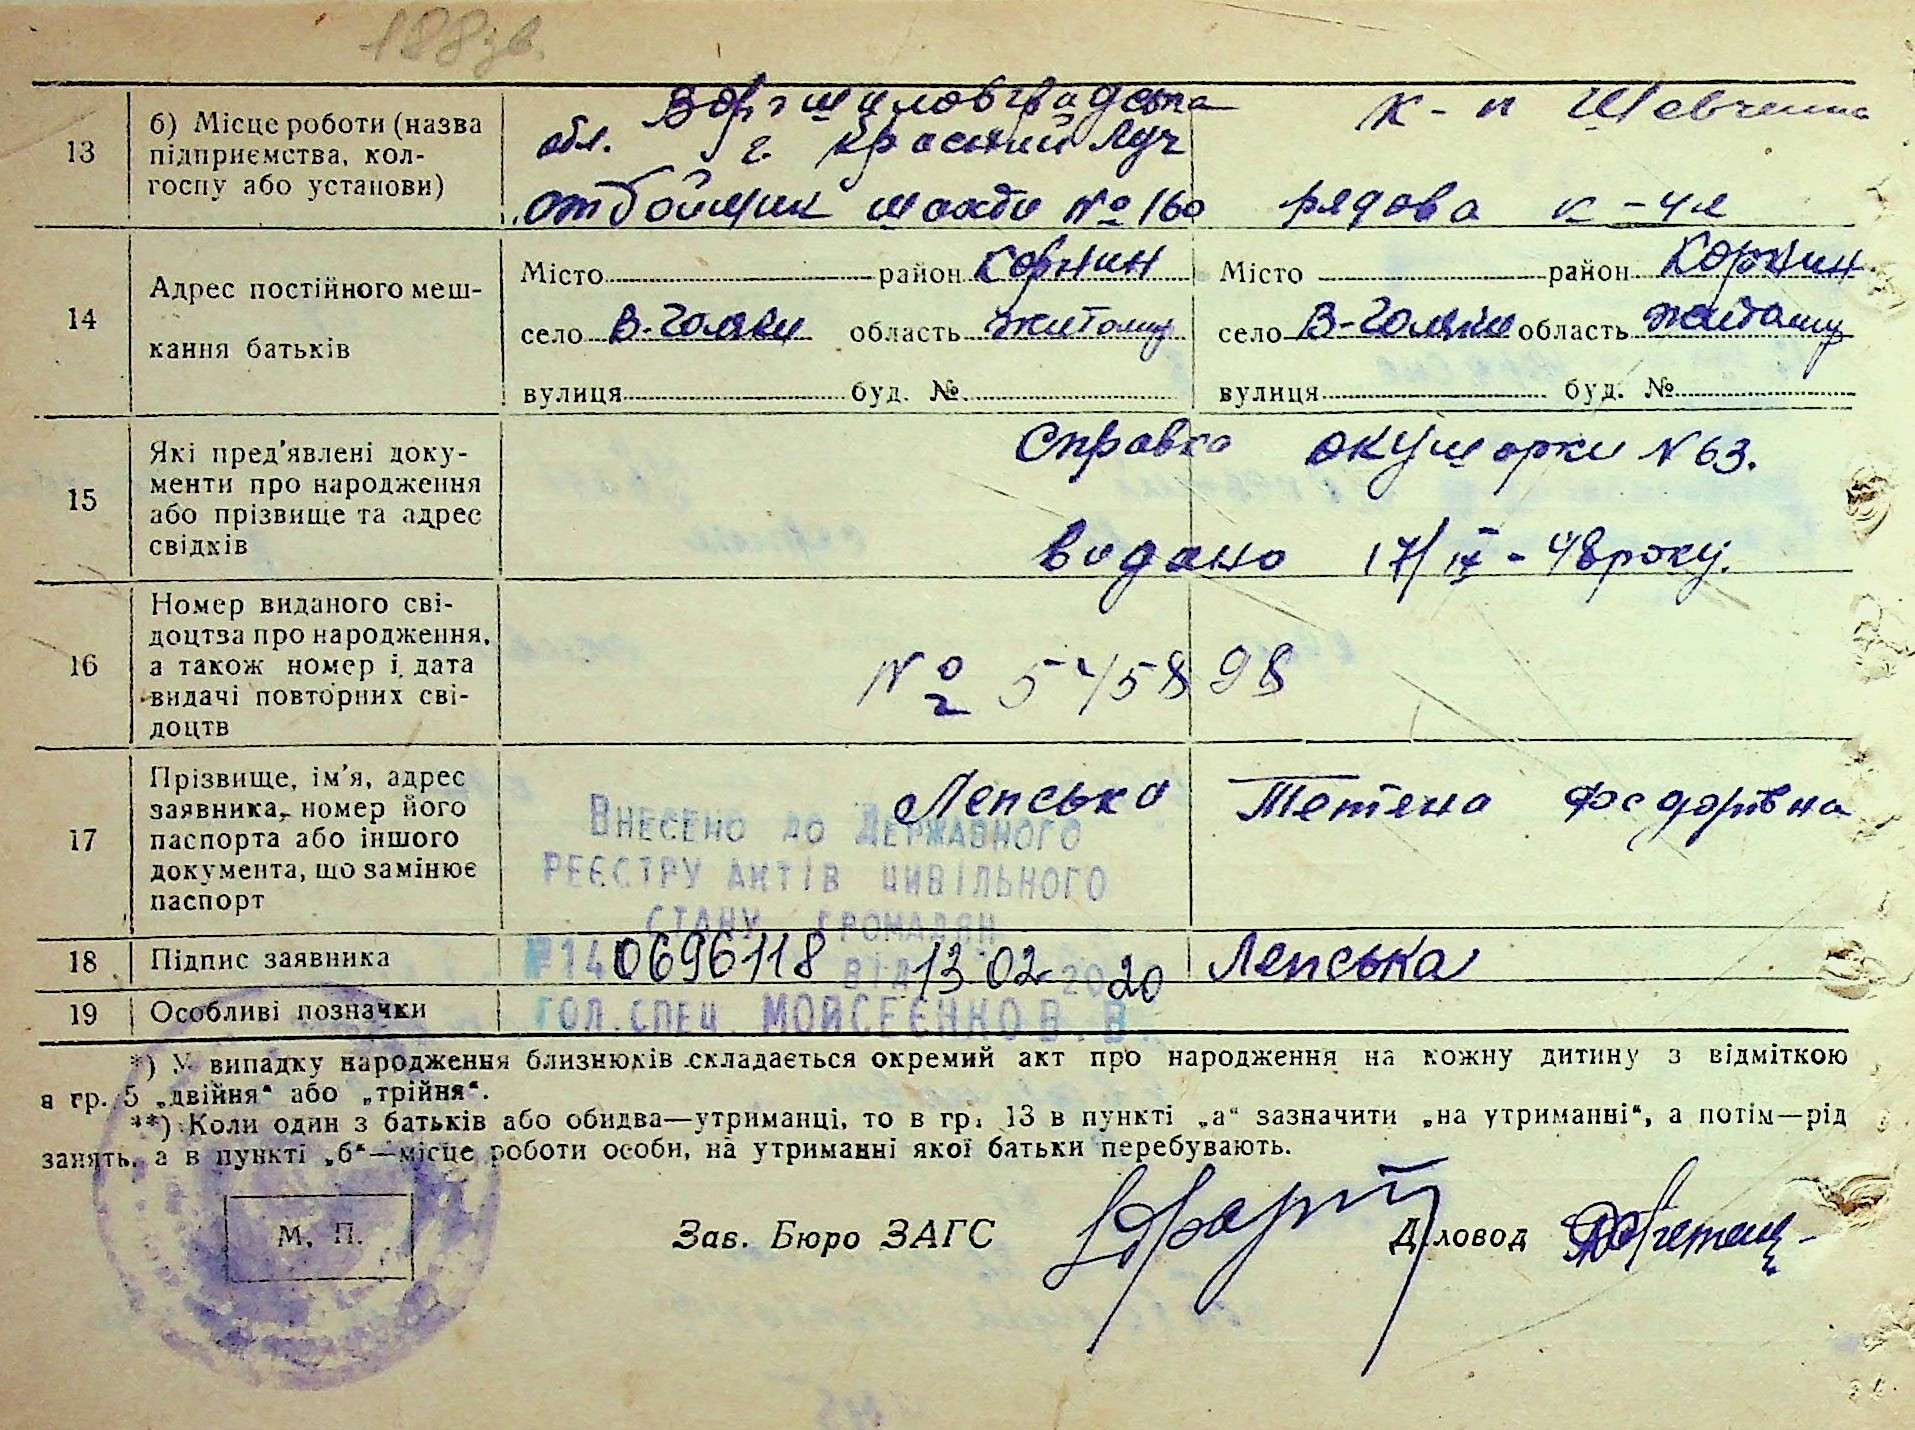 188зв.
13
б) Місце роботи (назва підприємства, кол-госпу або установи)
Ворошиловградська
обл. г. Красний Луч
отбойщик шахти № 160
к-п Шевченка
рядова к-чл
14
Адрес постійного меш-
кання батьків
Місто район Корнин
село В-Голяки область Житомир
вулиця буд. №
Місто район Корнин
село В-Голяки область Житомир
вулиця буд. №
15
Які пред'явлені доку-
менти про народження
або прізвище та адрес
свідків
Справка окушорки № 63.
видано 17/IX - 48 року.
16
Номер виданого сві-
доцтва про народження,
а також номер і дата
видачі повторних сві-
доцтв
№ 545898
17
Прізвище, ім'я, адрес
заявника, номер його
паспорта або іншого
документа, що замінює
паспорт
Лепська Тетяна Федорівна
Внесено до Державного
реєстру актів цивільного
стану громадян
18
Підпис заявника
№140696118 від 13 02 2020
Лепська
19
Особливі позначки
Гол.спец. Мойсеєнко В.В.
*) У випадку народження близнюків складається окремий акт про народження на кожну дитину з відміткою
в гр. 5 „двійня“ або „трійня“.
**) Коли один з батьків або обидва—утриманці, то в гр. 13 в пункті „а“ зазначити „на утриманні“, а потім—рід
занять, а в пункті „б“—місце роботи особи, на утриманні якої батьки перебувають.
М. П.
Зав. Бюро ЗАГС
Діловод